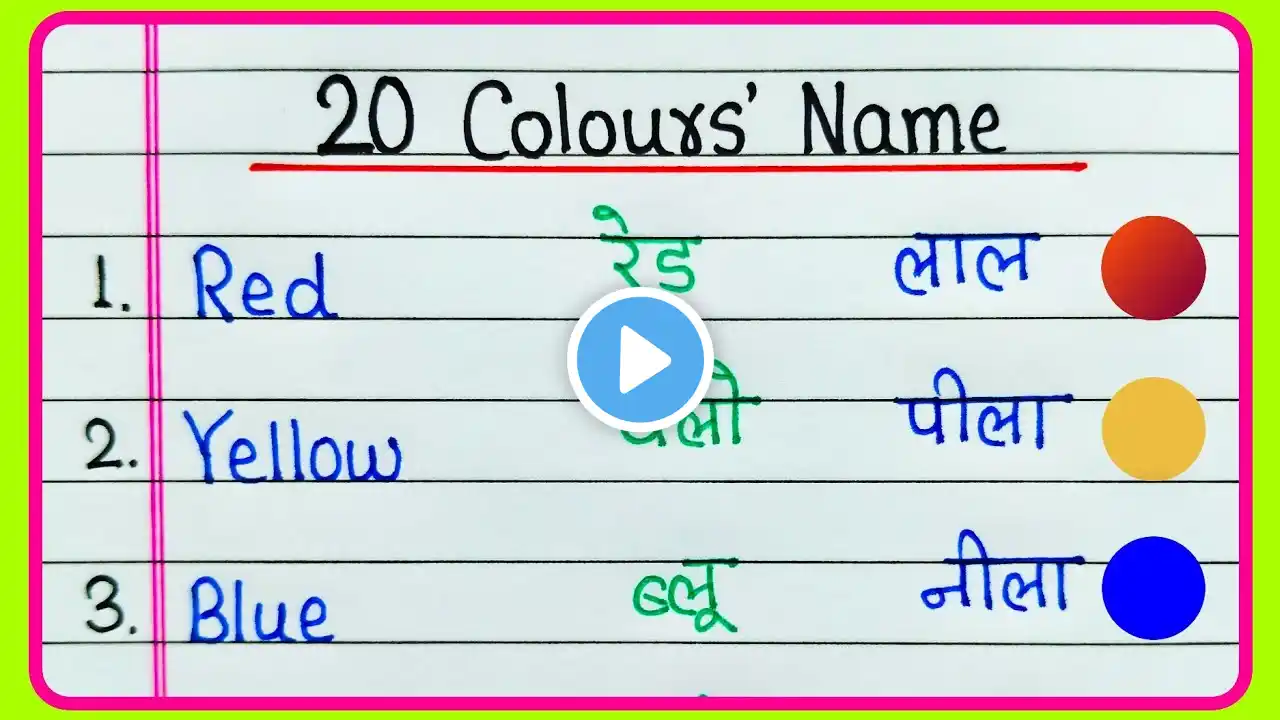 20 Colours' Name
1. Red रेड लाल
2. Yellow पीला
3. Blue ब्लू नीला